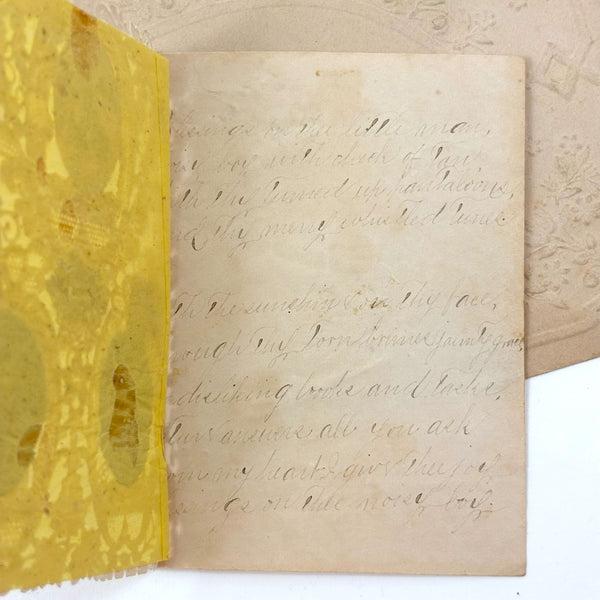 lessings on the little man,
boy with cheek of tan
th thy turned up pantaloons,
nd thy merry whistled tunes
th the sunshine on thy face,
rough thy torn brimes jaunty grace,
disliking books and tasks,
answers all you ask
om my heart I give thee joy
ssings on the noisy boy.